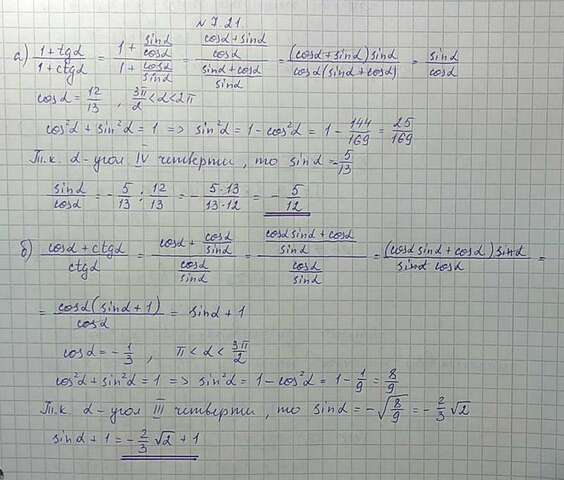 № 7.21.
а) (1+tgα)/(1+ctgα) = (1+ sinα/cosα)/(1+ cosα/sinα) = ((cosα+sinα)/cosα)/((sinα+cosα)/sinα) = ((cosα+sinα)sinα)/(cosα(sinα+cosα)) = sinα/cosα
cosα = 12/13 , 3π/2 < α < 2π
cos²α + sin²α = 1 => sin²α = 1 - cos²α = 1 - 144/169 = 25/169
Т.к. α-угол IV четверти, то sinα = -5/13
sinα/cosα = - 5/13 : 12/13 = - (5·13)/(13·12) = - 5/12
б) (cosα + ctgα)/ctgα = (cosα + cosα/sinα)/(cosα/sinα) = ((cosα sinα + cosα)/sinα)/(cosα/sinα) = ((cosα sinα + cosα) sinα)/(sinα cosα) =
= (cosα(sinα + 1))/cosα = sinα + 1
cosα = - 1/3 , π < α < 3π/2
cos²α + sin²α = 1 => sin²α = 1 - cos²α = 1 - 1/9 = 8/9
Т.к. α-угол III четверти, то sinα = -√(8/9) = - 2/3 √2
sinα + 1 = - 2/3 √2 + 1